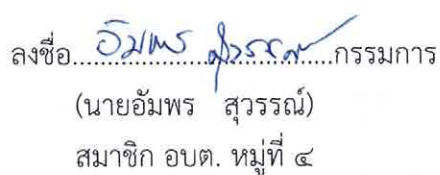 ลงชื่อ อัมพร สุวรรณ์ กรรมการ
(นายอัมพร สุวรรณ์)
สมาชิก อบต. หมู่ที่ ๔